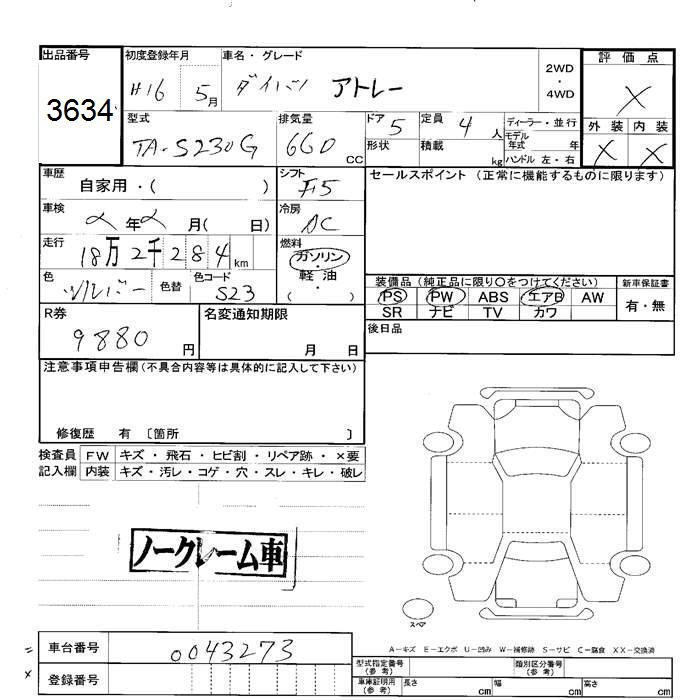 出品番号
3634
初度登録年月
H16 5月
車名・グレード
アトレー
2WD
・
4WD
評価点
X
外装 内装
X X
型式
TA-S230G
排気量
660 CC
ドア 5
形状
定員 4 人
積載 kg
ディーラー・並行
モデル
年式 年
ハンドル 左・右
車歴
自家用・( )
シフト
F5
セールスポイント (正常に機能するものに限ります)
車検
年 月( 日)
冷房
AC
走行
18万2千284km
燃料
ガソリン
・
軽油
( )
色
シルバー
色替
色コード
S23
装備品 (純正品に限り〇をつけてください)
PS PW ABS エアB AW
SR ナビ TV カワ
新車保証書
有・無
R券
9880円
名変通知期限
月 日
後日品
注意事項申告欄(不具合内容等は具体的に記入して下さい)
修復歴 有 〔箇所 〕
検査員
記入欄
FW キズ・飛石・ヒビ割・リペア跡・×要
内装 キズ・汚レ・コゲ・穴・スレ・キレ・破レ
ノークレーム車
スペア
A-キズ E-エクボ U-凹み W-補修跡 S-サビ C-腐食 XX-交換済
車台番号
0043273
登録番号
型式指定番号
(参考)
類別区分番号
(参考)
車庫証明用
(参考)
長さ cm
幅 cm
高さ cm